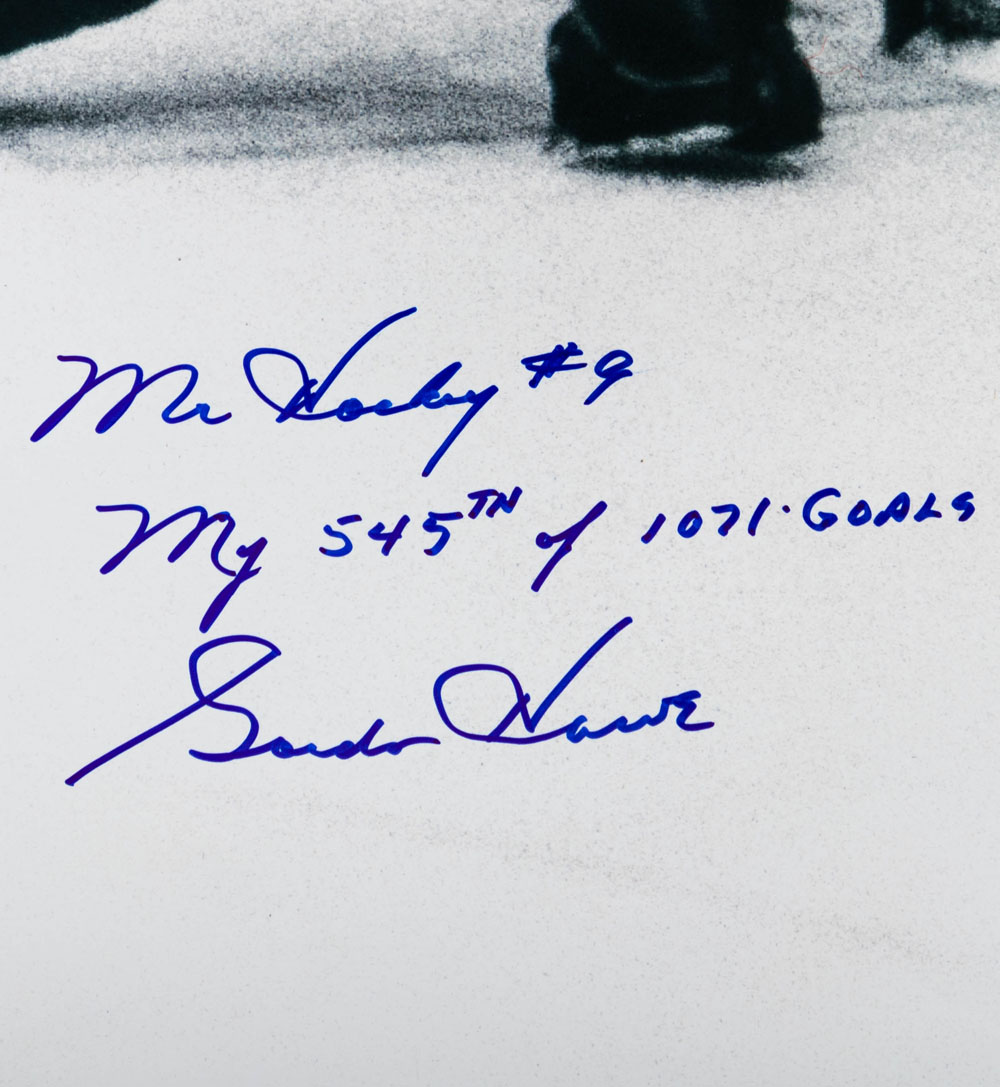 Mr Hockey #9
My 545TH of 1071 GOALS
Gordie Howe